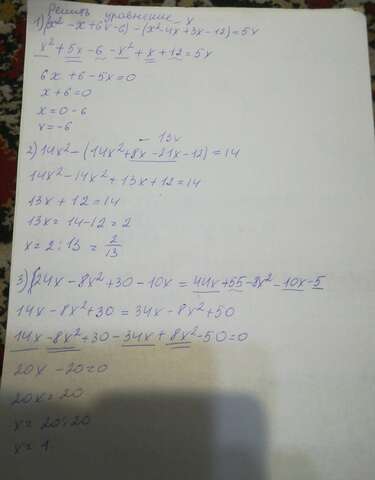 Решить уравнение
-x
1) (x² - x + 6x - 6) - (x² 4x + 3x - 12) = 5x
x² + 5x - 6 - x² + x + 12 = 5x
6x + 6 - 5x = 0
x + 6 = 0
x = 0 - 6
x = -6
- 13x
2) 14x² - (14x² + 8x - 21x - 12) = 14
14x² - 14x² + 13x + 12 = 14
13x + 12 = 14
13x = 14 - 12 = 2
x = 2 : 13 = 2/13
3) 24x - 8x² + 30 - 10x = 44x + 55 - 8x² - 10x - 5
14x - 8x² + 30 = 34x - 8x² + 50
14x - 8x² + 30 - 34x + 8x² - 50 = 0
20x - 20 = 0
20x = 20
x = 20 : 20
x = 1